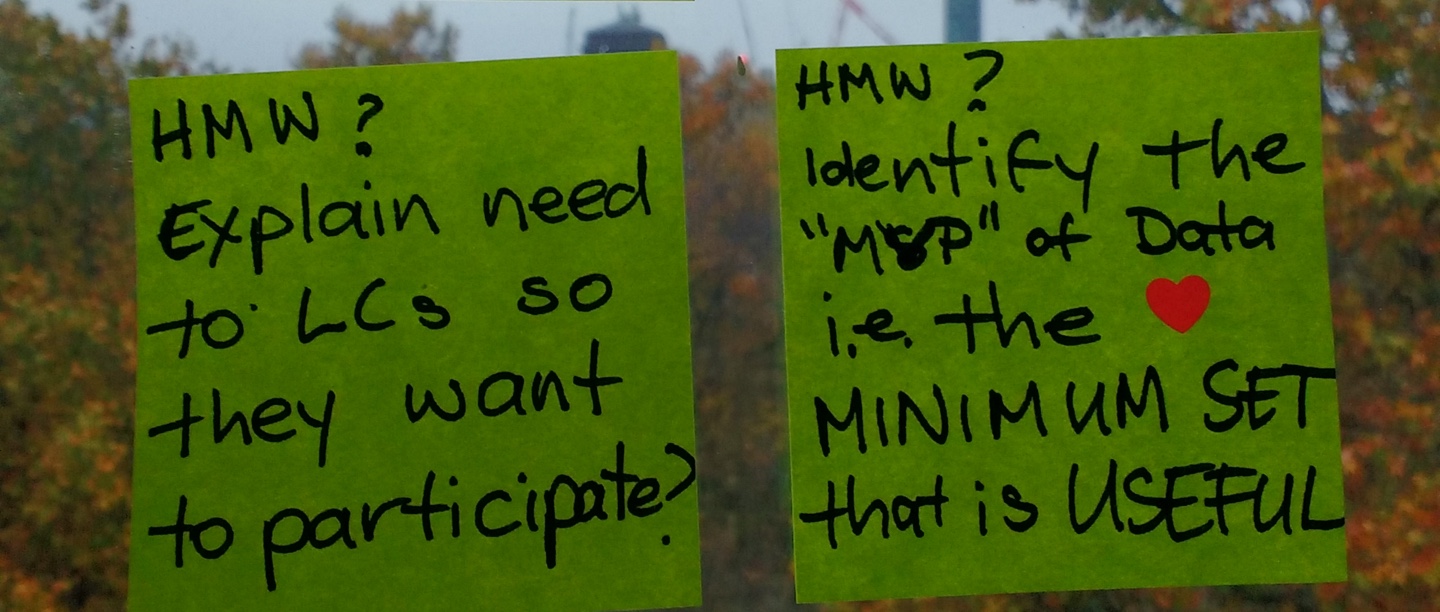 HMW?
Explain need
to LCs so
they want
to participate?
HMW?
Identify the
"MVP" of Data
i.e. the ♥
MINIMUM SET
that is USEFUL